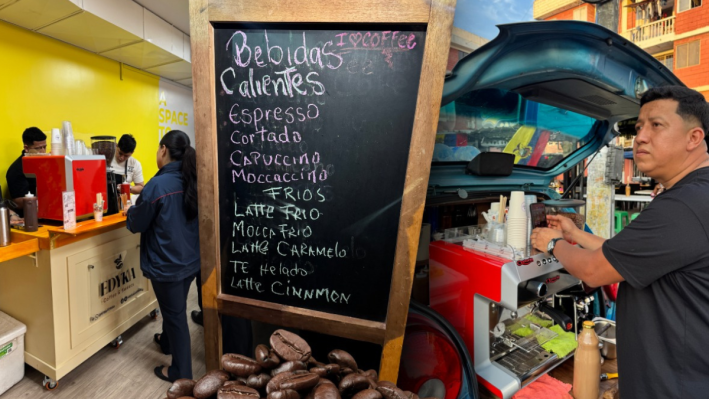 Bebidas
I ♡ COFFEE
Calientes
Espresso
Cortado
Capuccino
Moccaccino
FRIOS
Latte Frio
Molca Frio
Latte Caramelo
Te Helado
Latte Cinnmon
SPACE